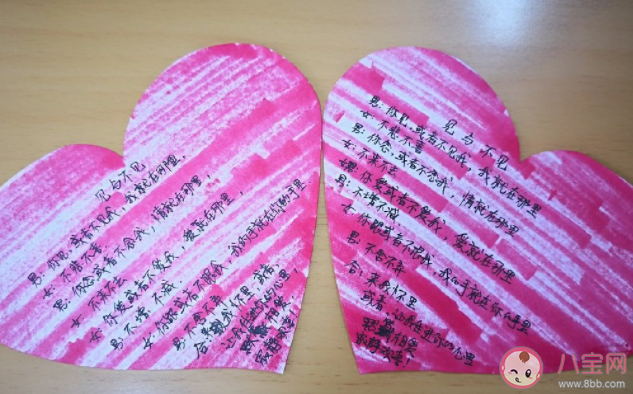 见与不见
男：你见，或者不见我，我就在那里，
女：不悲不喜
男：你念，或者不念我，情就在那里，
女：不来不去
女：你爱或者不爱我，爱就在那里，
男：不增，不减
女：你跟或者不跟我，我的手就在你的手里
男：不舍不弃
见与不见
男：你见，或者不见我，我就在那里
女：不悲不喜
男：你念，或者不念我，情就在那里
女：不来不去
你爱或者不爱我，爱就在那里
男：不增不减
女：你跟或者不跟我，我的手就在你手里
男：不舍不弃
合：来我怀里
或者，让我住进你的心里
默然相爱
寂静欢喜
八宝网
www.8bb.com